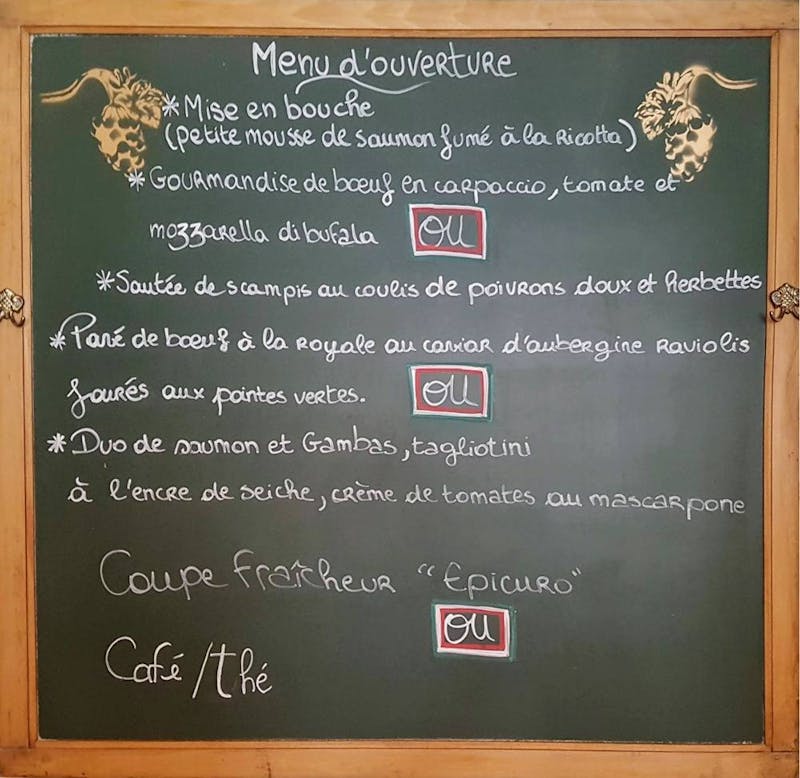 Menu d'ouverture
*Mise en bouche
(petite mousse de saumon fumé à la Ricotta)
*Gourmandise de bœuf en carpaccio, tomate et
mozzarella di bufala OU
*Sautée de scampis au coulis de poivrons doux et herbettes
*Pavé de bœuf à la Royale au caviar d'aubergine Raviolis
fourés aux pointes vertes. OU
*Duo de saumon et Gambas, tagliotini
à l'encre de seiche, crème de tomates au mascarpone
Coupe Fraîcheur "Epicuro"
OU
Café/thé